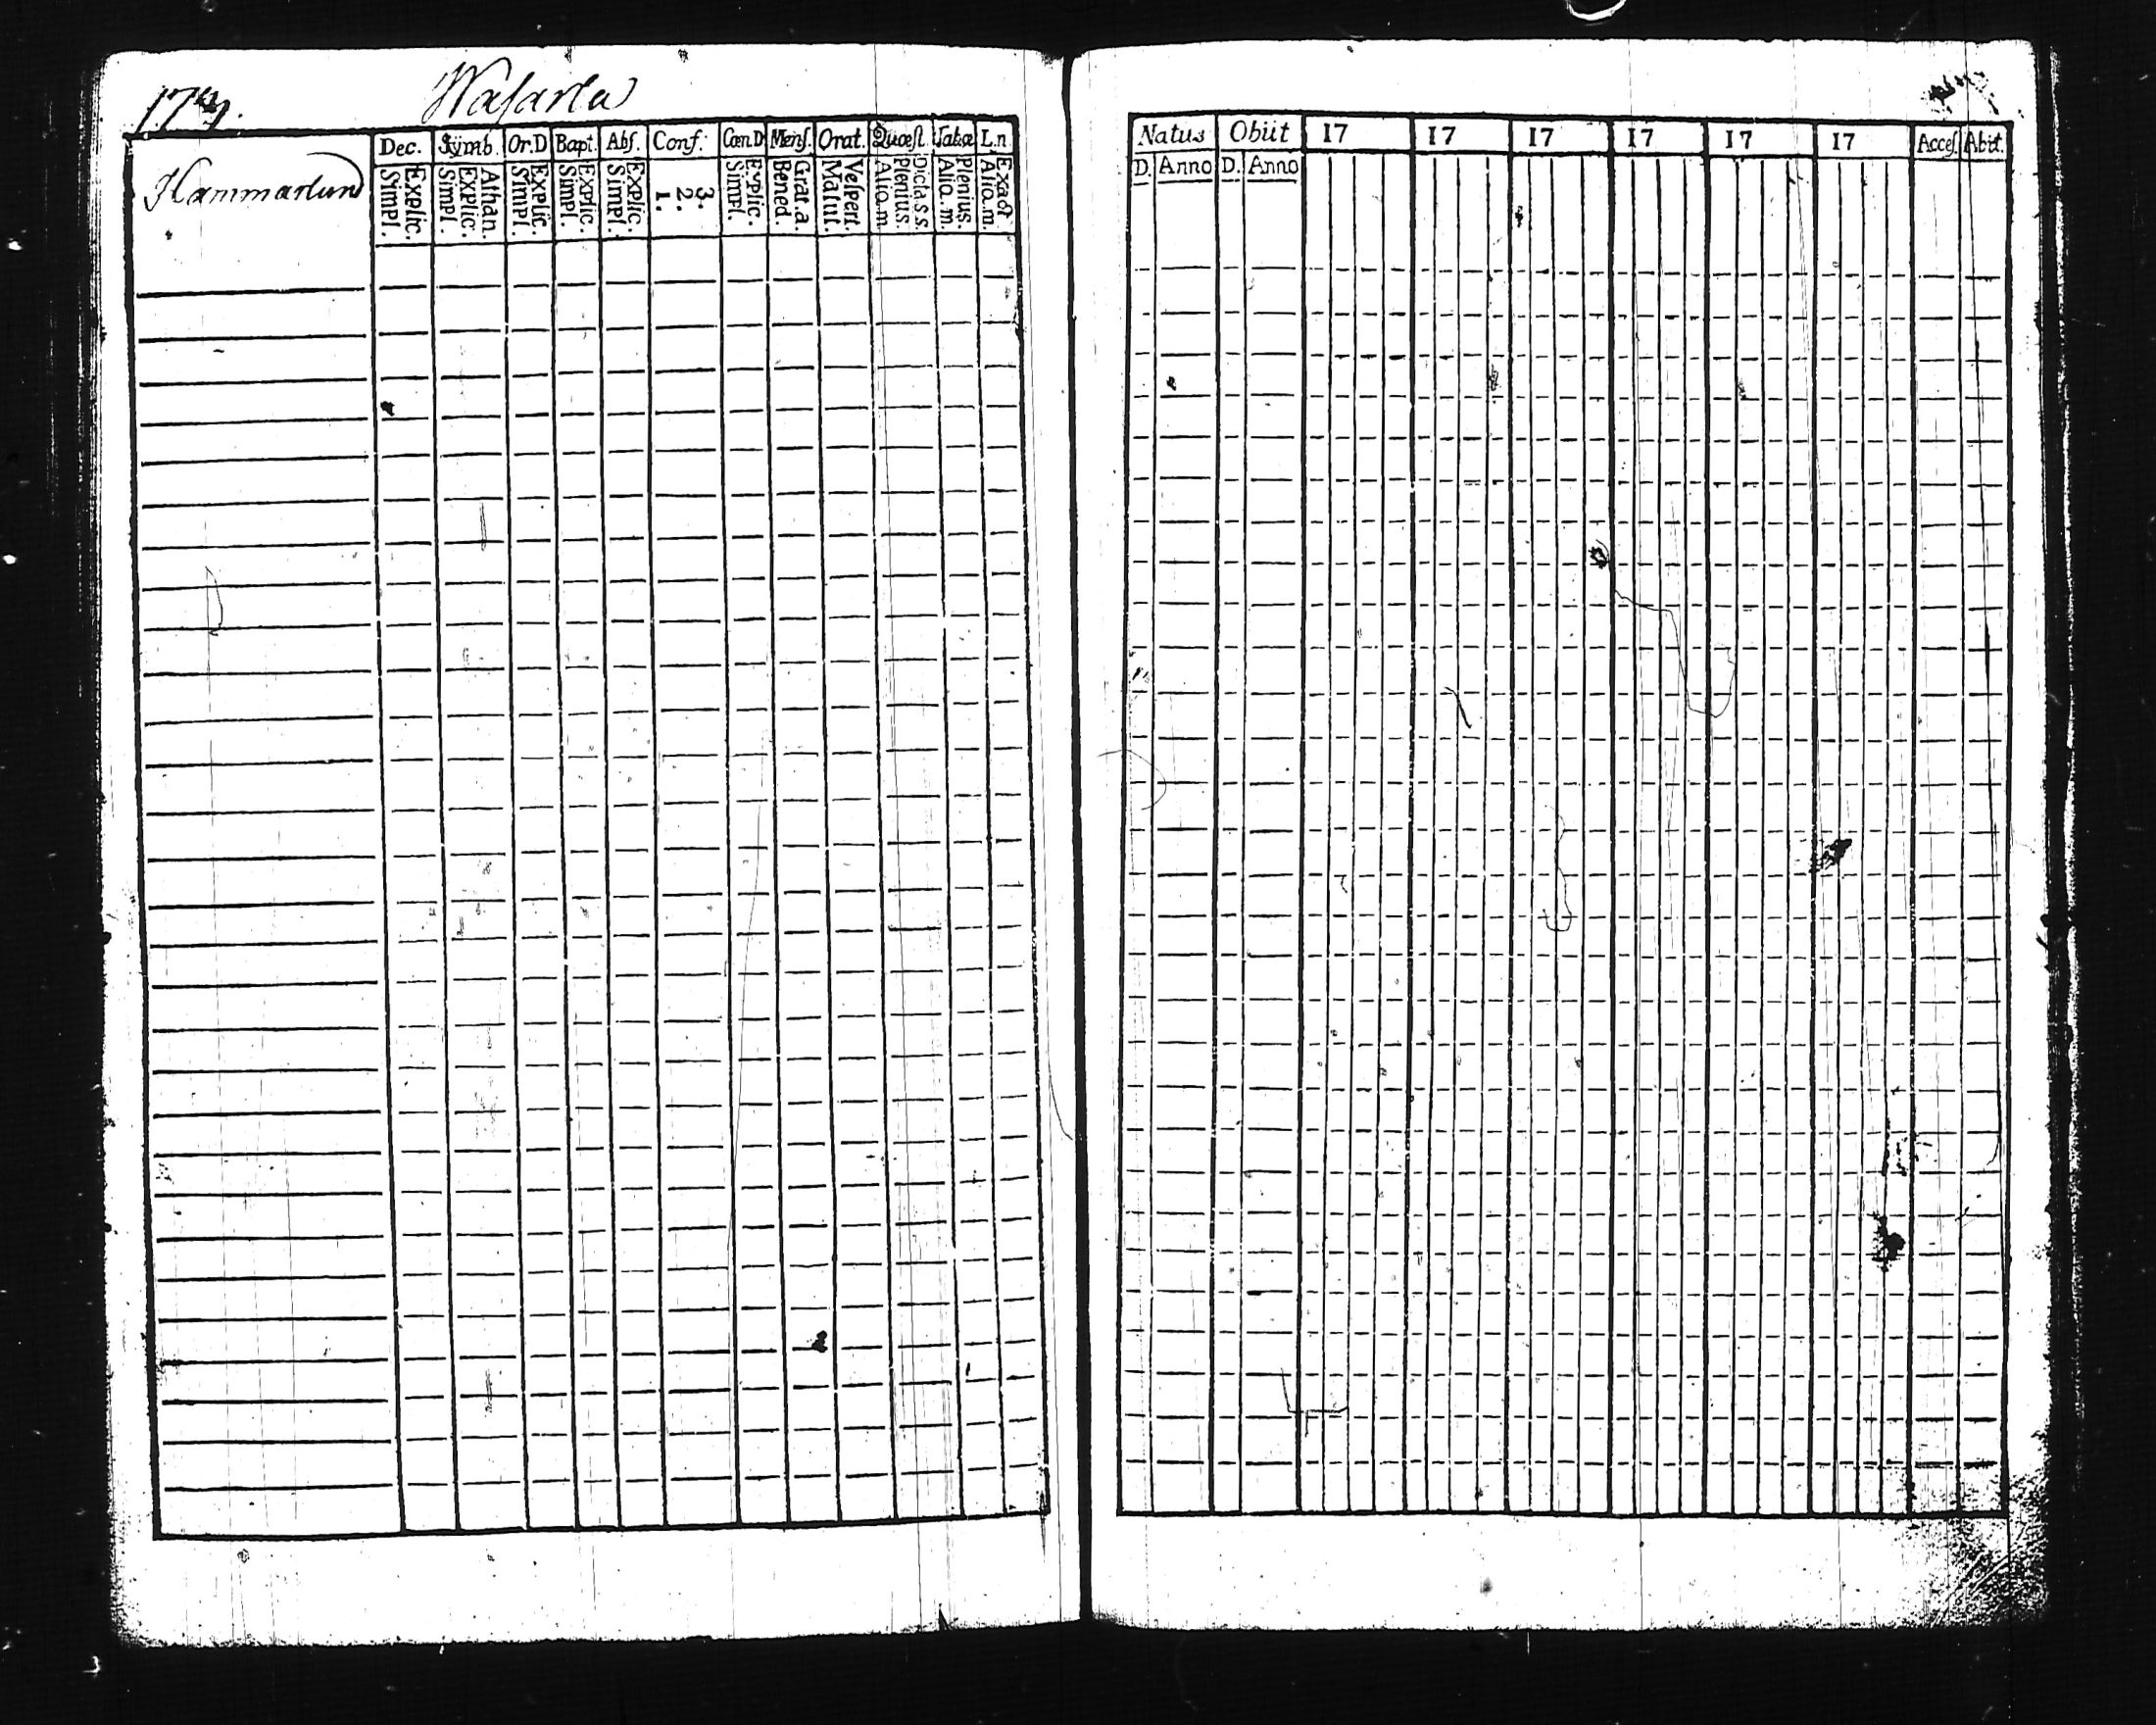 Wasarla
Hammarlund
Dec. Sÿmb. Or.D Bapt. Abſ. Conf. Cœn.D Menſ. Orat. Quæſt. Tabæ L.n
Simpl. Explic. Simpl. Explic. Athan. Simpl. Explic. Simpl. Explic. Simpl. Explic. 1. 2. 3. Simpl. Explic. Bened. Grat.a. Matut. Veſpert. Aliq.m Plenius. Dicta s.s. Aliq.m. Plenius. Aliq.m. Exact
Natus Obiit 17 17 17 17 17 17 Acceſ. Abit.
D. Anno D. Anno